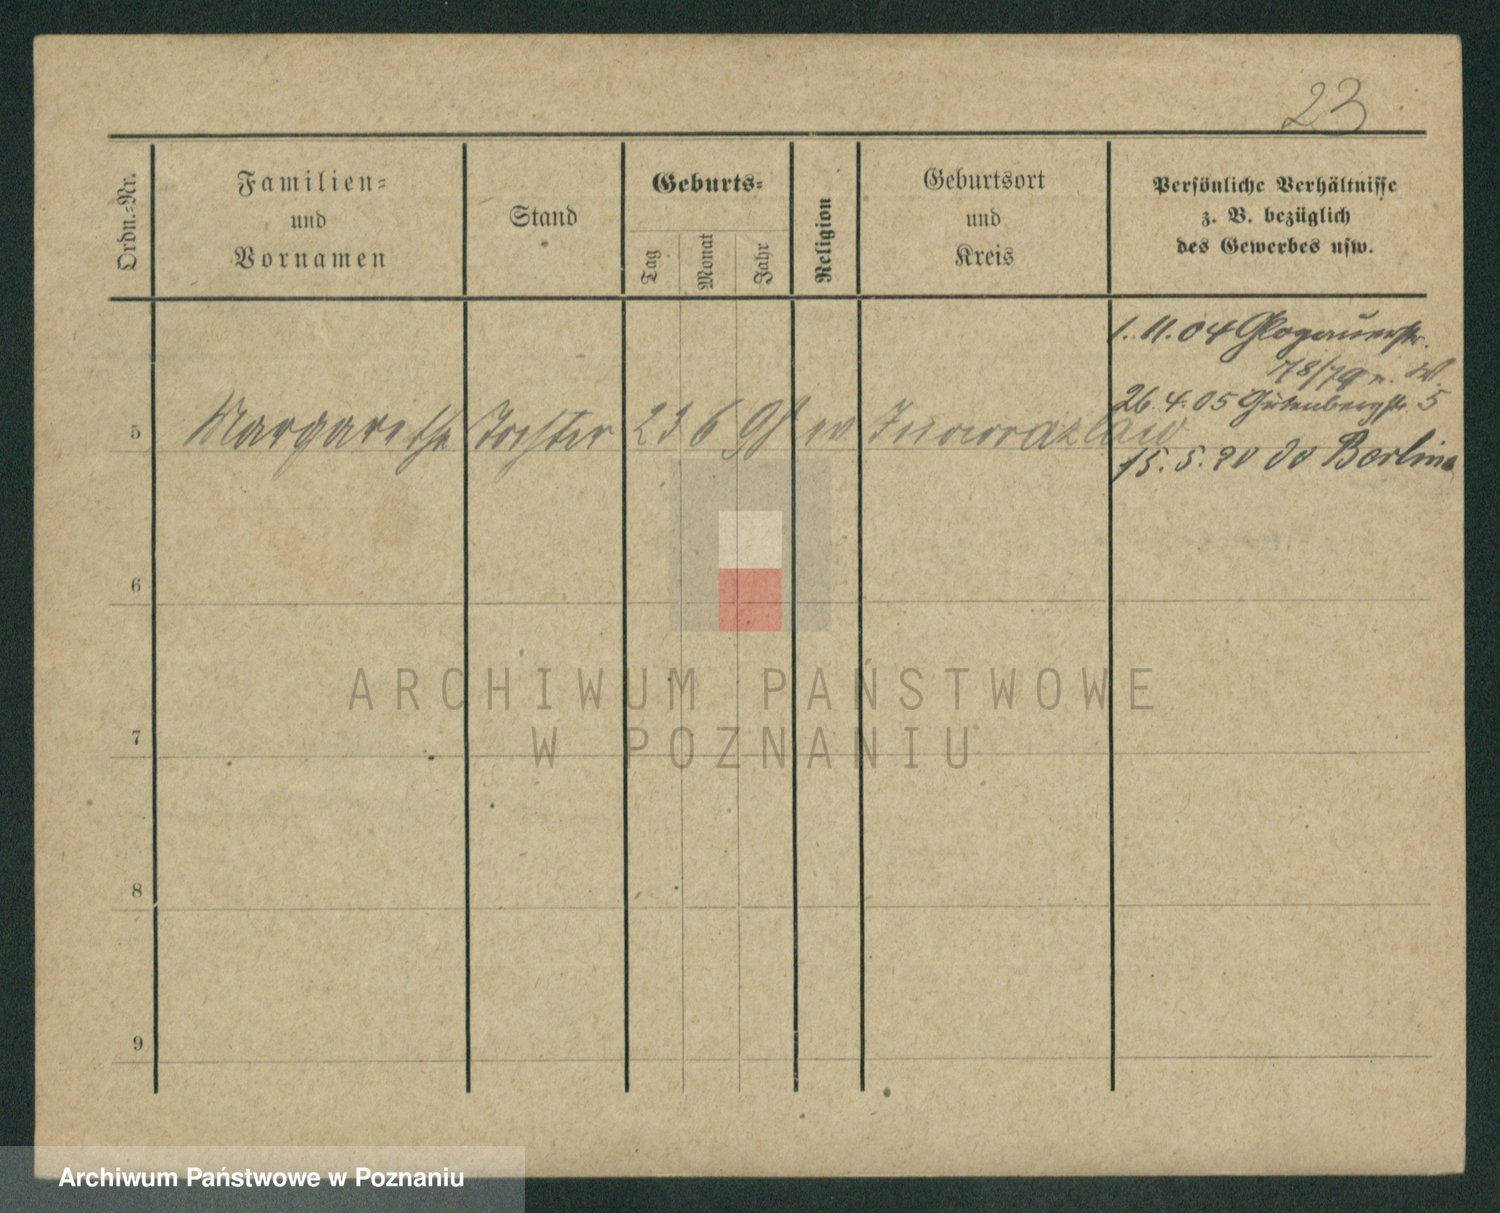 23
Ordn.-Nr.
Familien-
und
Vornamen
Stand
Geburts-
Tag
Monat
Jahr
Religion
Geburtsort
und
Kreis
Persönliche Verhältnisse
z. B. bezüglich
des Gewerbes usw.
1. 11. 04 Glogauerstr.
78/79
26. 4. 05 Gutenbergstr. 5
5 Margarethe Tochter 23 6 98 ev Inowrazlaw
15. 5. 20 Berlin
6
7
8
9
ARCHIWUM PAŃSTWOWE
W POZNANIU
Archiwum Państwowe w Poznaniu